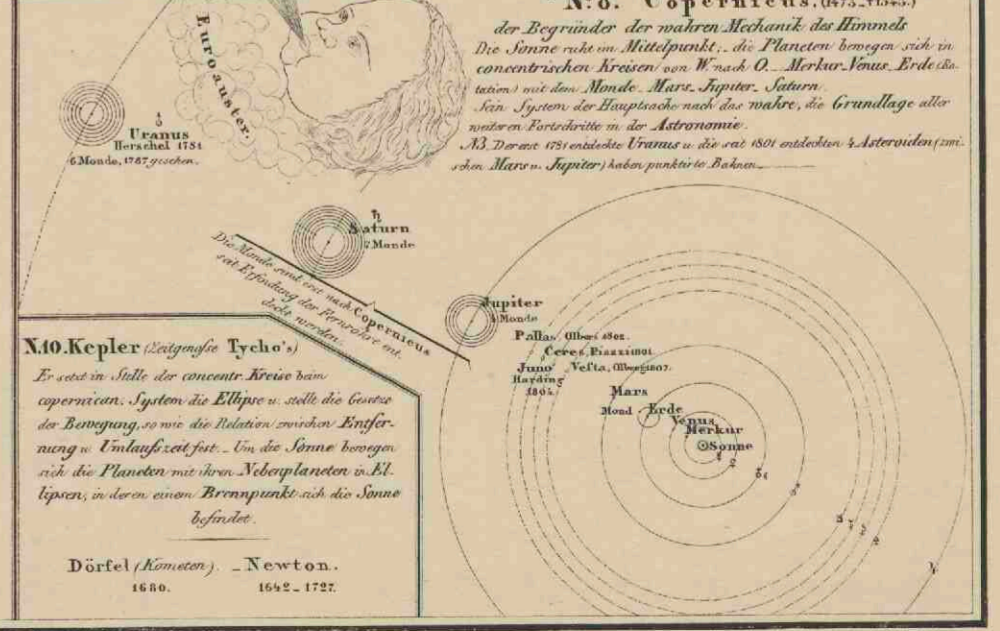 N.º 8. Copernicus, (1473–†1543.)
der Begründer der wahren Mechanik des Himmels
Die Sonne ruht im Mittelpunkt; die Planeten bewegen sich in
concentrischen Kreisen von W. nach O. Merkur Venus Erde (Ro-
tation) mit dem Monde. Mars. Jupiter. Saturn.
Sein System der Hauptsache nach das wahre, die Grundlage aller
weiteren Fortschritte in der Astronomie.
NB. Der erst 1781 entdeckte Uranus u. die seit 1801 entdeckten 4 Asteroiden (zwi-
schen Mars u. Jupiter) haben punktirte Bahnen.
Euroauster.
Uranus
Herschel 1781
6 Monde, 1787 gesehen.
♄
Saturn
7 Monde
Die Monde sind erst nach Copernicus
seit Erfindung der Fernröhre ent-
deckt worden.
Jupiter
4 Monde
Pallas, Olbers 1802.
Ceres, Piazzi 1801
Juno Vesta, Olbers 1807.
Harding
1804.
Mars
Mond Erde
Venus
Merkur
Sonne
N.10. Kepler (Zeitgenoſse Tycho's)
Er setzt in Stelle der concentr. Kreise beim
copernican. System die Ellipse u. stellt die Gesetze
der Bewegung, so wie die Relation zwischen Entfer-
nung u. Umlaufszeit fest. Um die Sonne bewegen
sich die Planeten mit ihren Nebenplaneten in El-
lipsen, in deren einem Brennpunkt sich die Sonne
befindet.
Dörfel (Kometen). – Newton.
1680. 1642–1727.